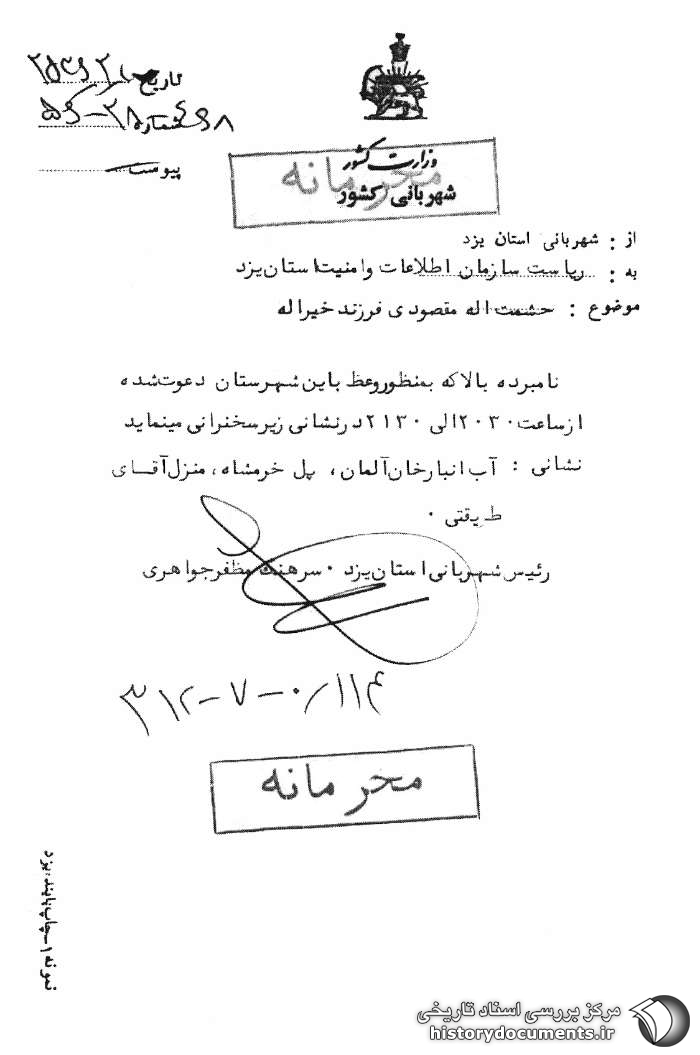 تاریخ
شماره
پیوست
وزارت کشور
محرمانه
شهربانی کشور
از : شهربانی استان یزد
به : ریاست سازمان اطلاعات وامنیت استان یزد
موضوع : حشمت اله مقصودی فرزند خیراله
نامبرده بالاکه بمنظوروعظ باین شهرستان دعوت شده
ازساعت ۲۰۳۰ الی ۲۱۳۰ درنشانی زیرسخنرانی مینماید
نشانی : آب انبارخان آلمان ، پل خرمشاه ، منزل آقای
طریقتی ۰
رئیس شهربانی استان یزد ۰ سرهنگ مظفرجواهری
۳۱۲-۷-۰/۱۱۴
محرمانه
نمونه ۱-چاپ پایند، یزد
مرکز بررسی اسناد تاریخی
historydocuments.ir